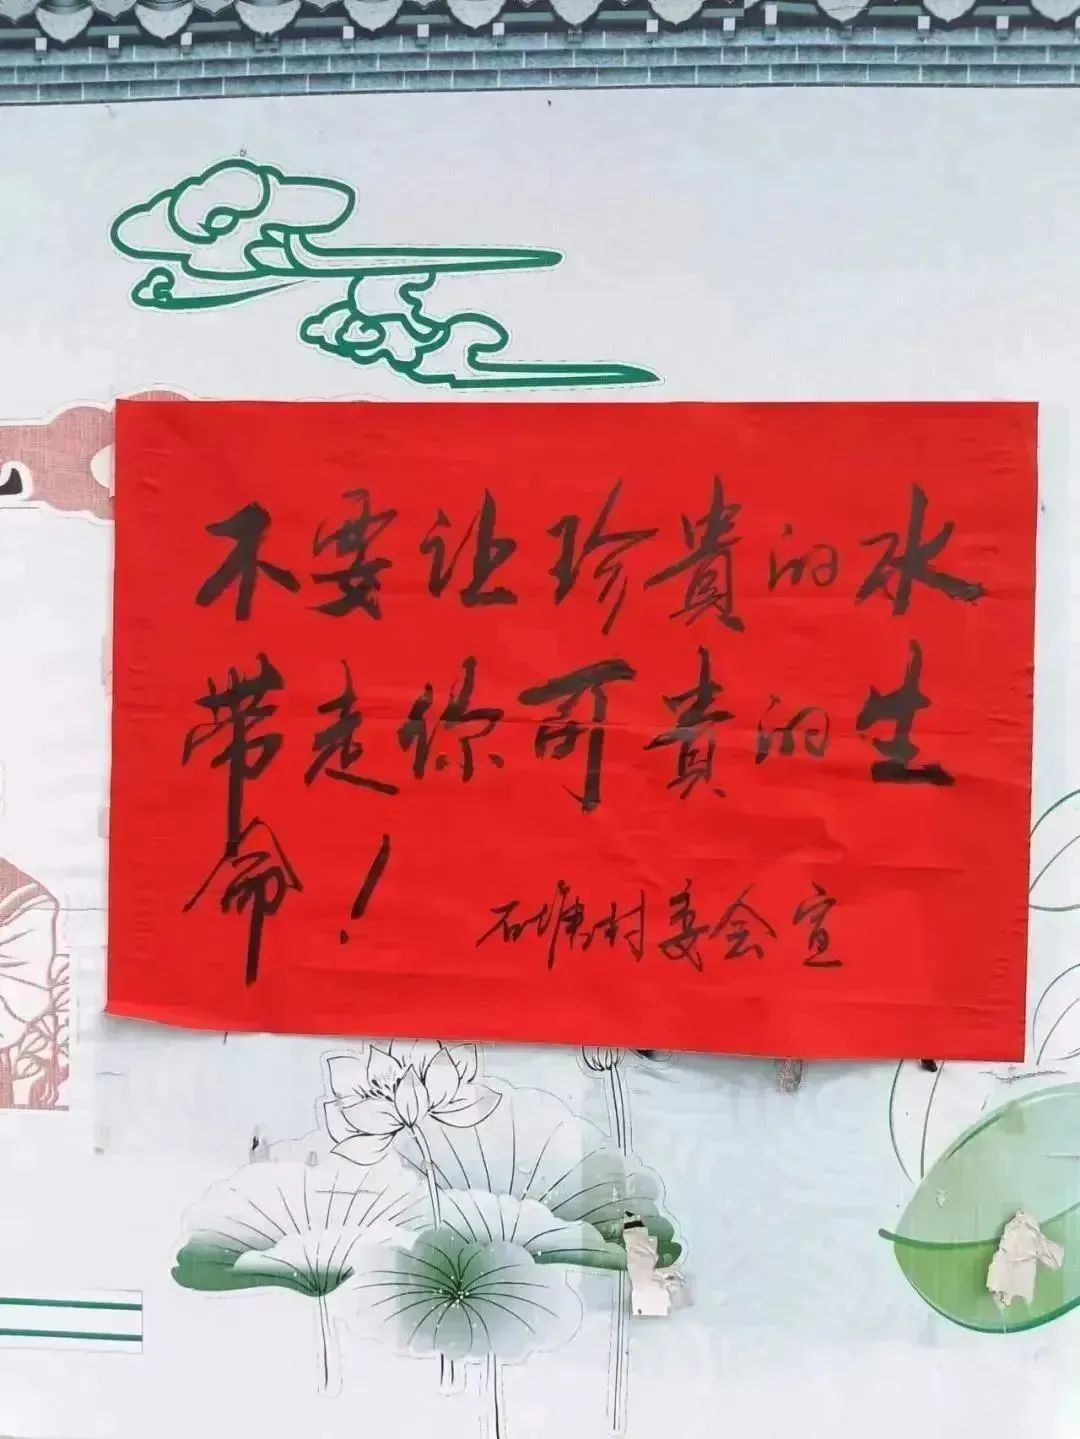 不要让珍貴的水
带走你可貴的生
命！
石塘村委会宣